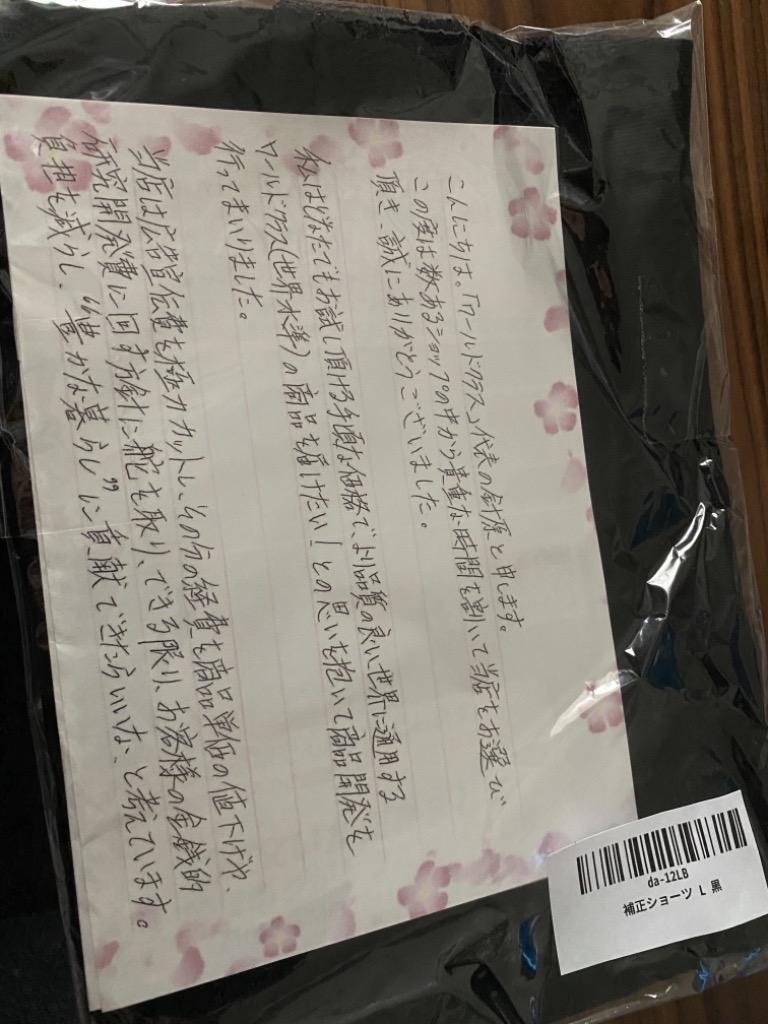 こんにちは。「ワールドクラス」代表の針原と申します。
この度は数あるショップの中から貴重な時間を割いて当店をお選び
頂き、誠にありがとうございました。
私はどなたでもお試し頂ける手頃な価格で、より品質の良い世界に通用する
ワールドクラス(世界水準)の商品を届けたい！との思いを抱いて商品開発を
行ってまいりました。
当店は広告宣伝費を極力カットし、その分の経費を商品単価の値下げや、
研究開発費に回す方針に舵を取り、できる限り、お客様の金銭的
負担を減らし、“豊かな暮らし”に貢献できたらいいな、と考えています。
da-12LB
補正ショーツ L 黒